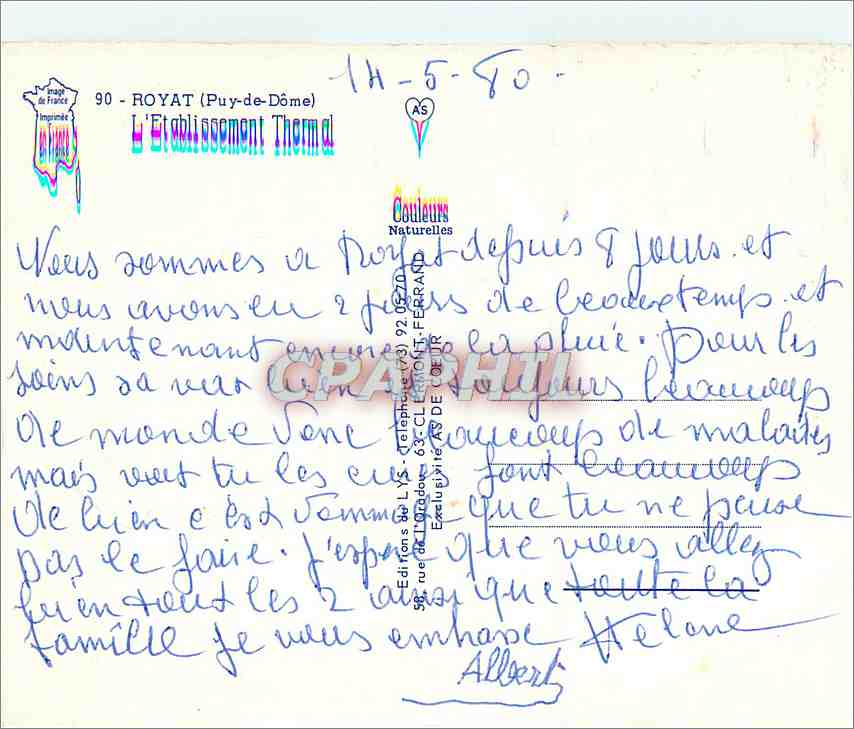 14-5-80-
Image
de France
Imprimée
en France
90 - ROYAT (Puy-de-Dôme)
L'Etablissement Thermal
AS
Couleurs
Naturelles
Editions du LYS - Téléphone (73) 92.05.70
58, rue de l'Oradou - 63-CLERMONT-FERRAND
Exclusivité AS DE COEUR
Nous sommes a Royat depuis 8 jours. et
nous avons eu 2 jours de beau temps. et
maintenant encore de la pluie. Pour les
soins sa va bien toujours beaucoup
de monde donc beaucoup de malades
mais voit tu les cures font beaucoup
de bien c'est dommage que tu ne puisse
pas le faire. J'espère que vous allez
bien tout les 2 ainsi que toute la
famille je vous embrasse Hélène
Albert
CPAPHIL